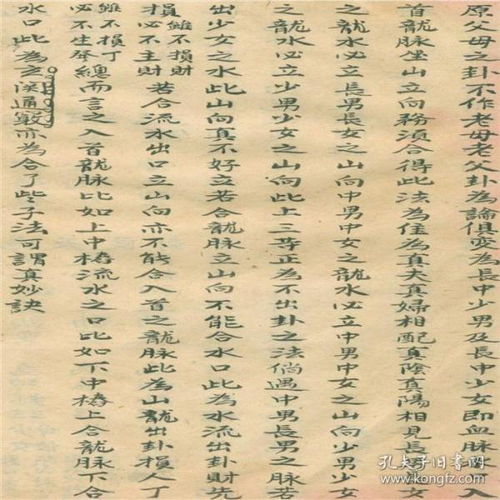 原父母之卦不作老母老父卦為論俱变為長中少男及長中少女即血脉入
首龍脉坐山立向務須合得此法為佳為真夫真婦相配真陰真陽相見長男女
之龍水必立長男長女之山向中男中女之龍水必立中男中女之山向少男少女
之龍水必立少男少女之山向此上三等正為不出卦之法倘遇中男長男之脉若
出少女之水此山向真不好立若合龍脉立山向不能合水口此為水流出卦財先
損雖不損財必不主財若合流水出口立山向亦不能合入首之龍脉此為山龍出卦損丁
雖不損丁必不生發總而言之入首龍脉比如上中樁流水之口比如下中樁上合龍脉下合
水口此為玄関通竅亦為合了些子法可謂真妙訣
孔夫子旧书网
www.kongfz.com